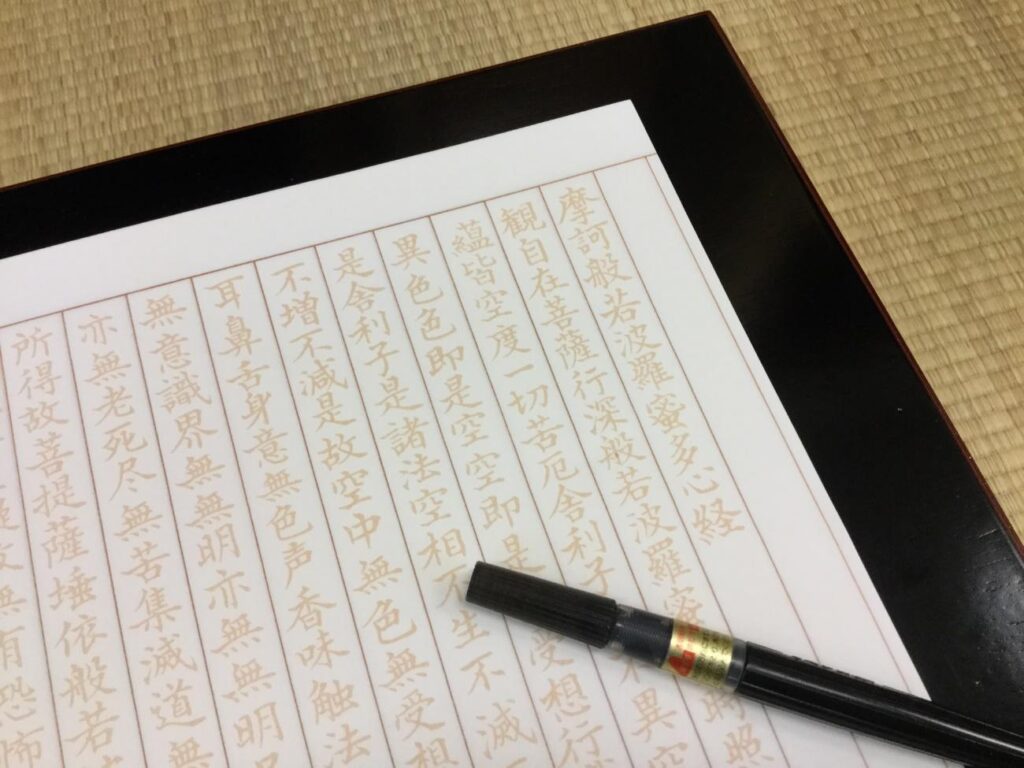 摩訶般若波羅蜜多心経
観自在菩薩行深般若波羅蜜時照
蘊皆空度一切苦厄舎利子不異空
異色色即是空空即是受想行
是舎利子是諸法空相不生不滅
不増不減是故空中無色無受想
耳鼻舌身意無色声香味触法
無意識界無無明亦無無明
亦無老死尽無苦集滅道無
所得故菩提薩埵依般若
故無有恐怖